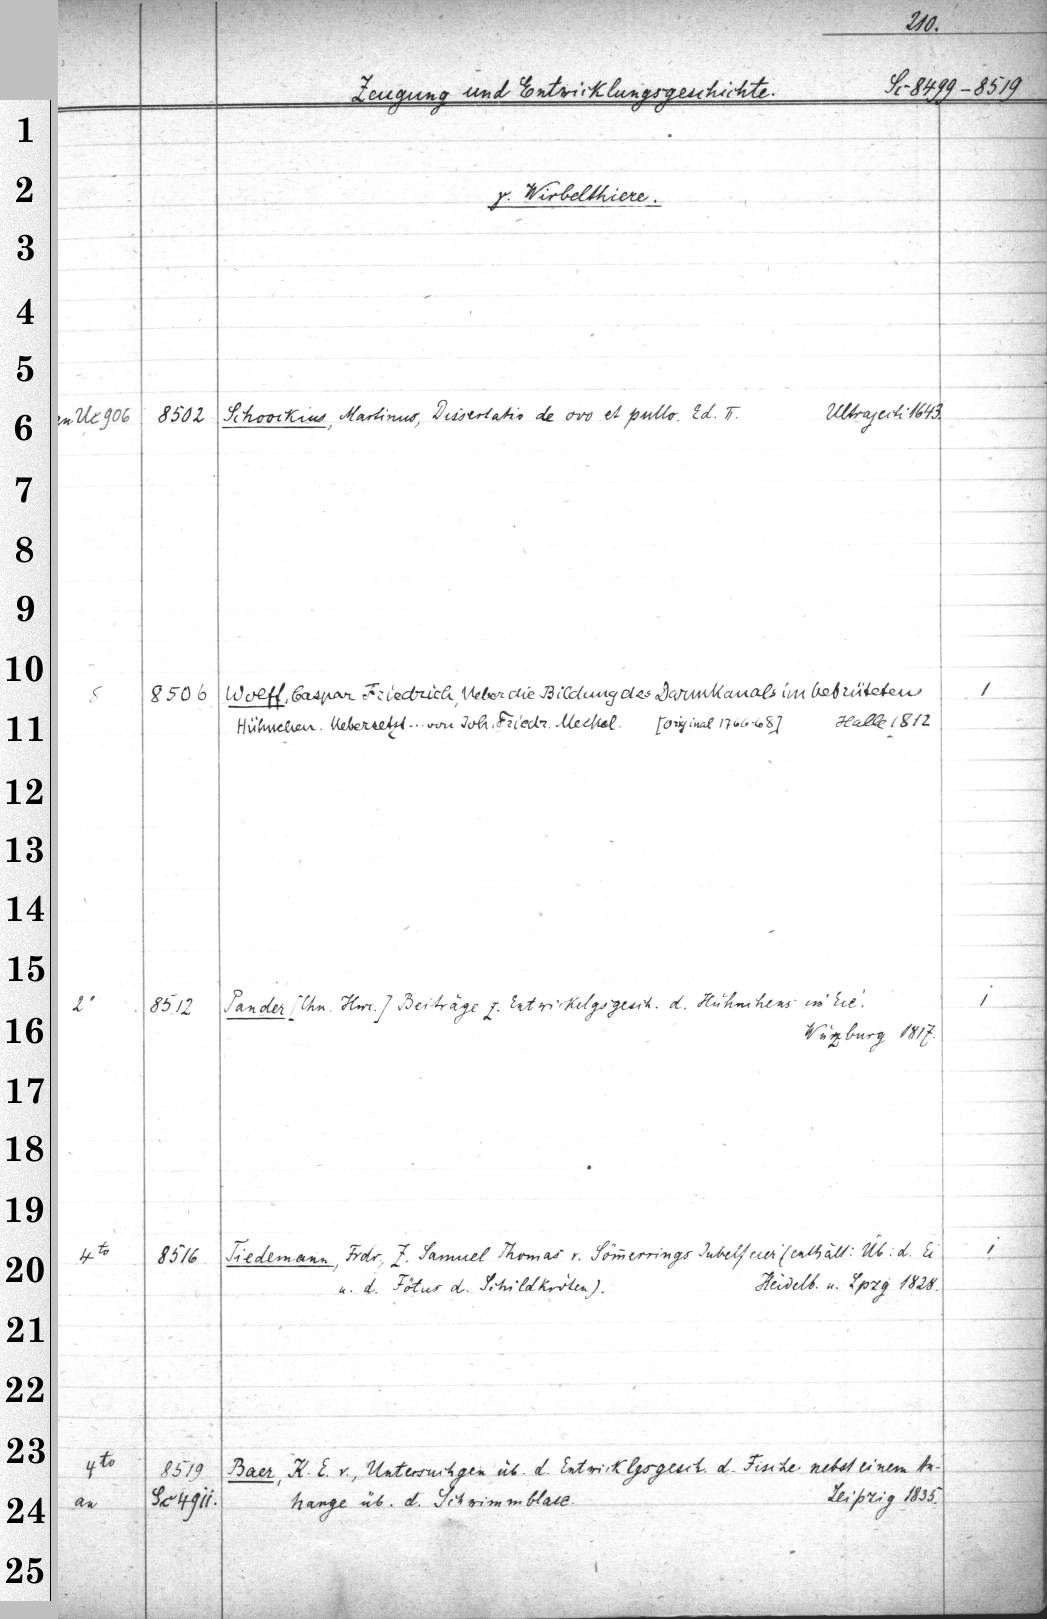 210.
Zeugung und Entwicklungsgeschichte. Sc 8499-8519
1
2
γ. Wirbelthiere.
3
4
5
6
an Ux 906 8502 Schoockius, Martinus, Dissertatio de ovo et pullo. Ed. II. Ultrajecti 1643.
7
8
9
10
8 8506 Wolff, Caspar Friedrich, Ueber die Bildung des Darmkanals im bebrüteten 1
11
Hühnchen. Uebersetzt... von Joh. Friedr. Meckel. [Original 1766-68] Halle 1812
12
13
14
15
2° 8512 Pander [Chn. Hnr.] Beiträge z. Entwickelgsgesch. d. Hühnchens im Eie. 1
16
Würzburg 1817.
17
18
19
20
4to 8516 Tiedemann, Frdr., Z. Samuel Thomas v. Sömerrings Jubelfeier (enthält: Üb: d. Ei 1
u. d. Fötus d. Schildkröten). Heidelb. u. Lpzg 1828.
21
22
23
4to 8519 Baer, K. E. v., Untersuchgen üb. d. Entwicklgsgesch. d. Fische nebst einem An-
24
an Sc 49ii. hange üb. d. Schwimmblase. Leipzig 1835.
25